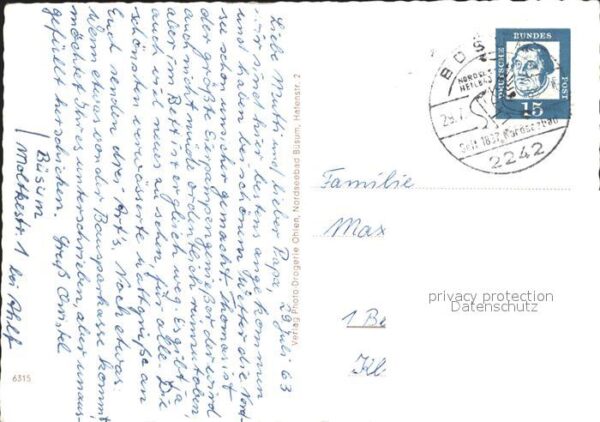 29. Juli 63
Liebe Mutti und lieber Papa,
wir sind hier bestens angekommen
und haben bei schönem Wetter die Nord-
see schon unsicher gemacht. Thomas ist
der größte
auch nicht müde ordentlich rumzutoben,
aber im Bett ist er gleich weg. es gibt ja
auch viel neues zu sehen, für alle. Die
schönsten Wattgrüße an
Euch senden drei Noch etwas:
Wenn etwas von der Bausparkasse kommt,
möchtet Ihr es unterschreiben, aber unaus-
gefüllt herschicken. Gruß
Büsum
Moltkestr. 1 bei
Verlag Photo-Drogerie Ohlen, Nordseebad Büsum, Hafenstr. 2
6315
DEUTSCHE BUNDESPOST
15
BÜS
NORDSEE
HEIL
29.7.
Seit 1837 Nordseebad
2242
Familie
Max
1 Be
privacy protection
Datenschutz